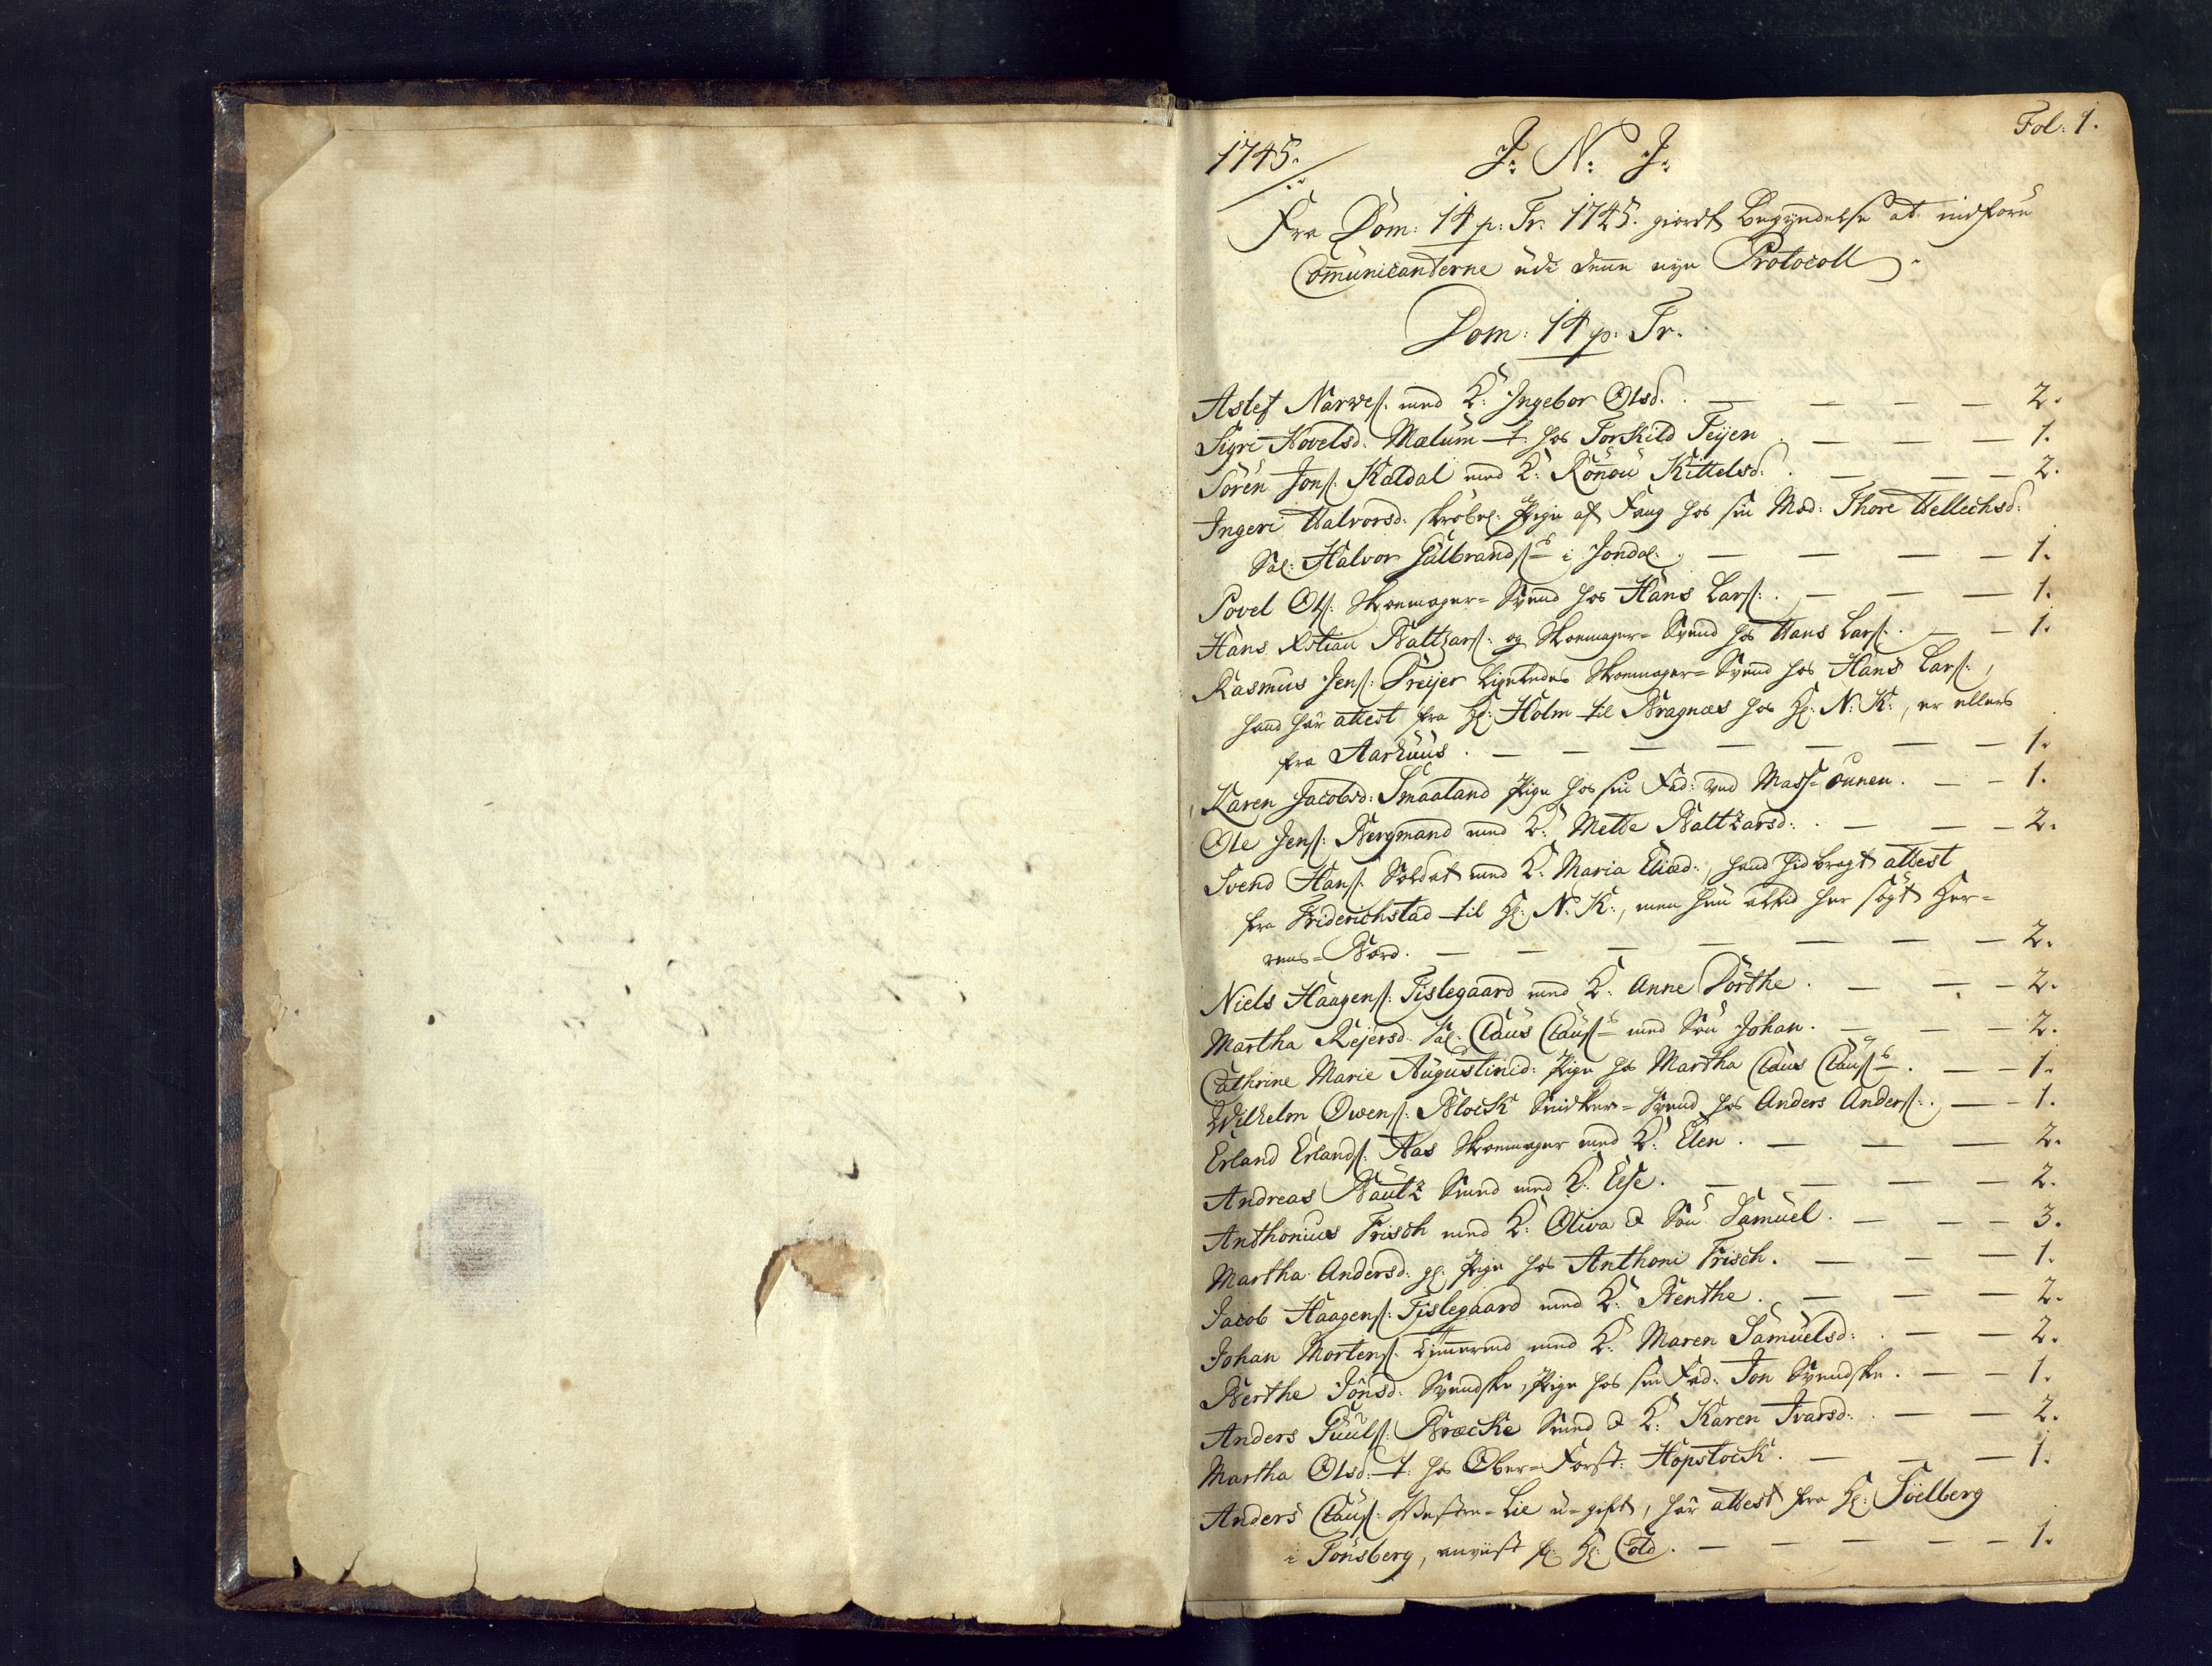 Fol: 1.
1745.
J: N: J:
Fra Dom: 14 p: Tr: 1745. giordt Begyndelse at indføre
Com̄unicanterne udi denne nye Protocoll.
Dom: 14 p: Tr.
Aslef Narves: med K: Ingebor Olsd: — — — — 2.
Sigri Hovelsd: Mælum t: hos Torkild Teyen. — — — 1.
Søren Jons: Kaldal med K: Ron̄ou Kittelsd: — — — 2.
Ingeri Halvorsd: Pige af Faug hos sin Mod: Thore Wellechsd:
Sal: Halvor Gulbrands:s i Jondal. — — — — 1.
Povel Ols: Skoemager-Svend hos Hans Lars: — — — 1.
Hans Xstian Baltzars: og Skoemager-Svend hos Hans Lars: — — 1.
Rasmus Jens: Dreijer ligeledes Skoemager-Svend hos Hans Lars:,
hand har attest fra Hr: Holm til Bragnæs hos Hr: N: K:, er ellers
fra Aarhuus. — — — — — — — 1.
Karen Jacobsd: Smaaland Pige hos sin Fad: ved Mass-ounen. — — 1.
Ole Jens: Bergmand med K: Mette Baltzarsd: — — — 2.
Svend Hans: Soldat med K: Maria Eliæd: hand hid bragt attest
fra Friderichstad til Hr: N: K:, men hun altid har søgt Her-
rens-Bord. — — — — — — — 2.
Niels Haagens: Tislegaard med K: Anne Dorthe. — — — 2.
Martha Rejersd: Sal: Claus Claus:s med Søn Johan. — — — 2.
Cathrine Marie Augustinid: Pige hos Martha Claus Claus:s. — — 1.
Wilhelm Owens: Block Snidker-Svend hos Anders Anders: — — 1.
Erland Erlands: Aas Skoemager med K: Elen. — — — 2.
Andreas Bautz Smed med K: Else. — — — — 2.
Anthonius Frisch med K: Oliva & Søn Samuel. — — — 3.
Martha Andersd: gl: Pige hos Anthoni Frisch. — — — 1.
Jacob Haagens: Tislegaard med K: Benthe. — — — 2.
Johan Mortens: Tim̄ermd med K: Maren Samuelsd: — — 2.
Berthe Jonsd: Svendske, Pige hos sin Fad: Jon Svendske. — — 1.
Anders Puuls: Bræcke Smed & K: Karen Ivarsd: — — 2.
Martha Olsd: t: hos Ober-Forst: Hopstock. — — — 1.
Anders Claus: Vestre-Lie u-gift, har attest fra Hr: Süelberg
i Tønsberg, anviist fr: Hr: Cold. — — — — — 1.